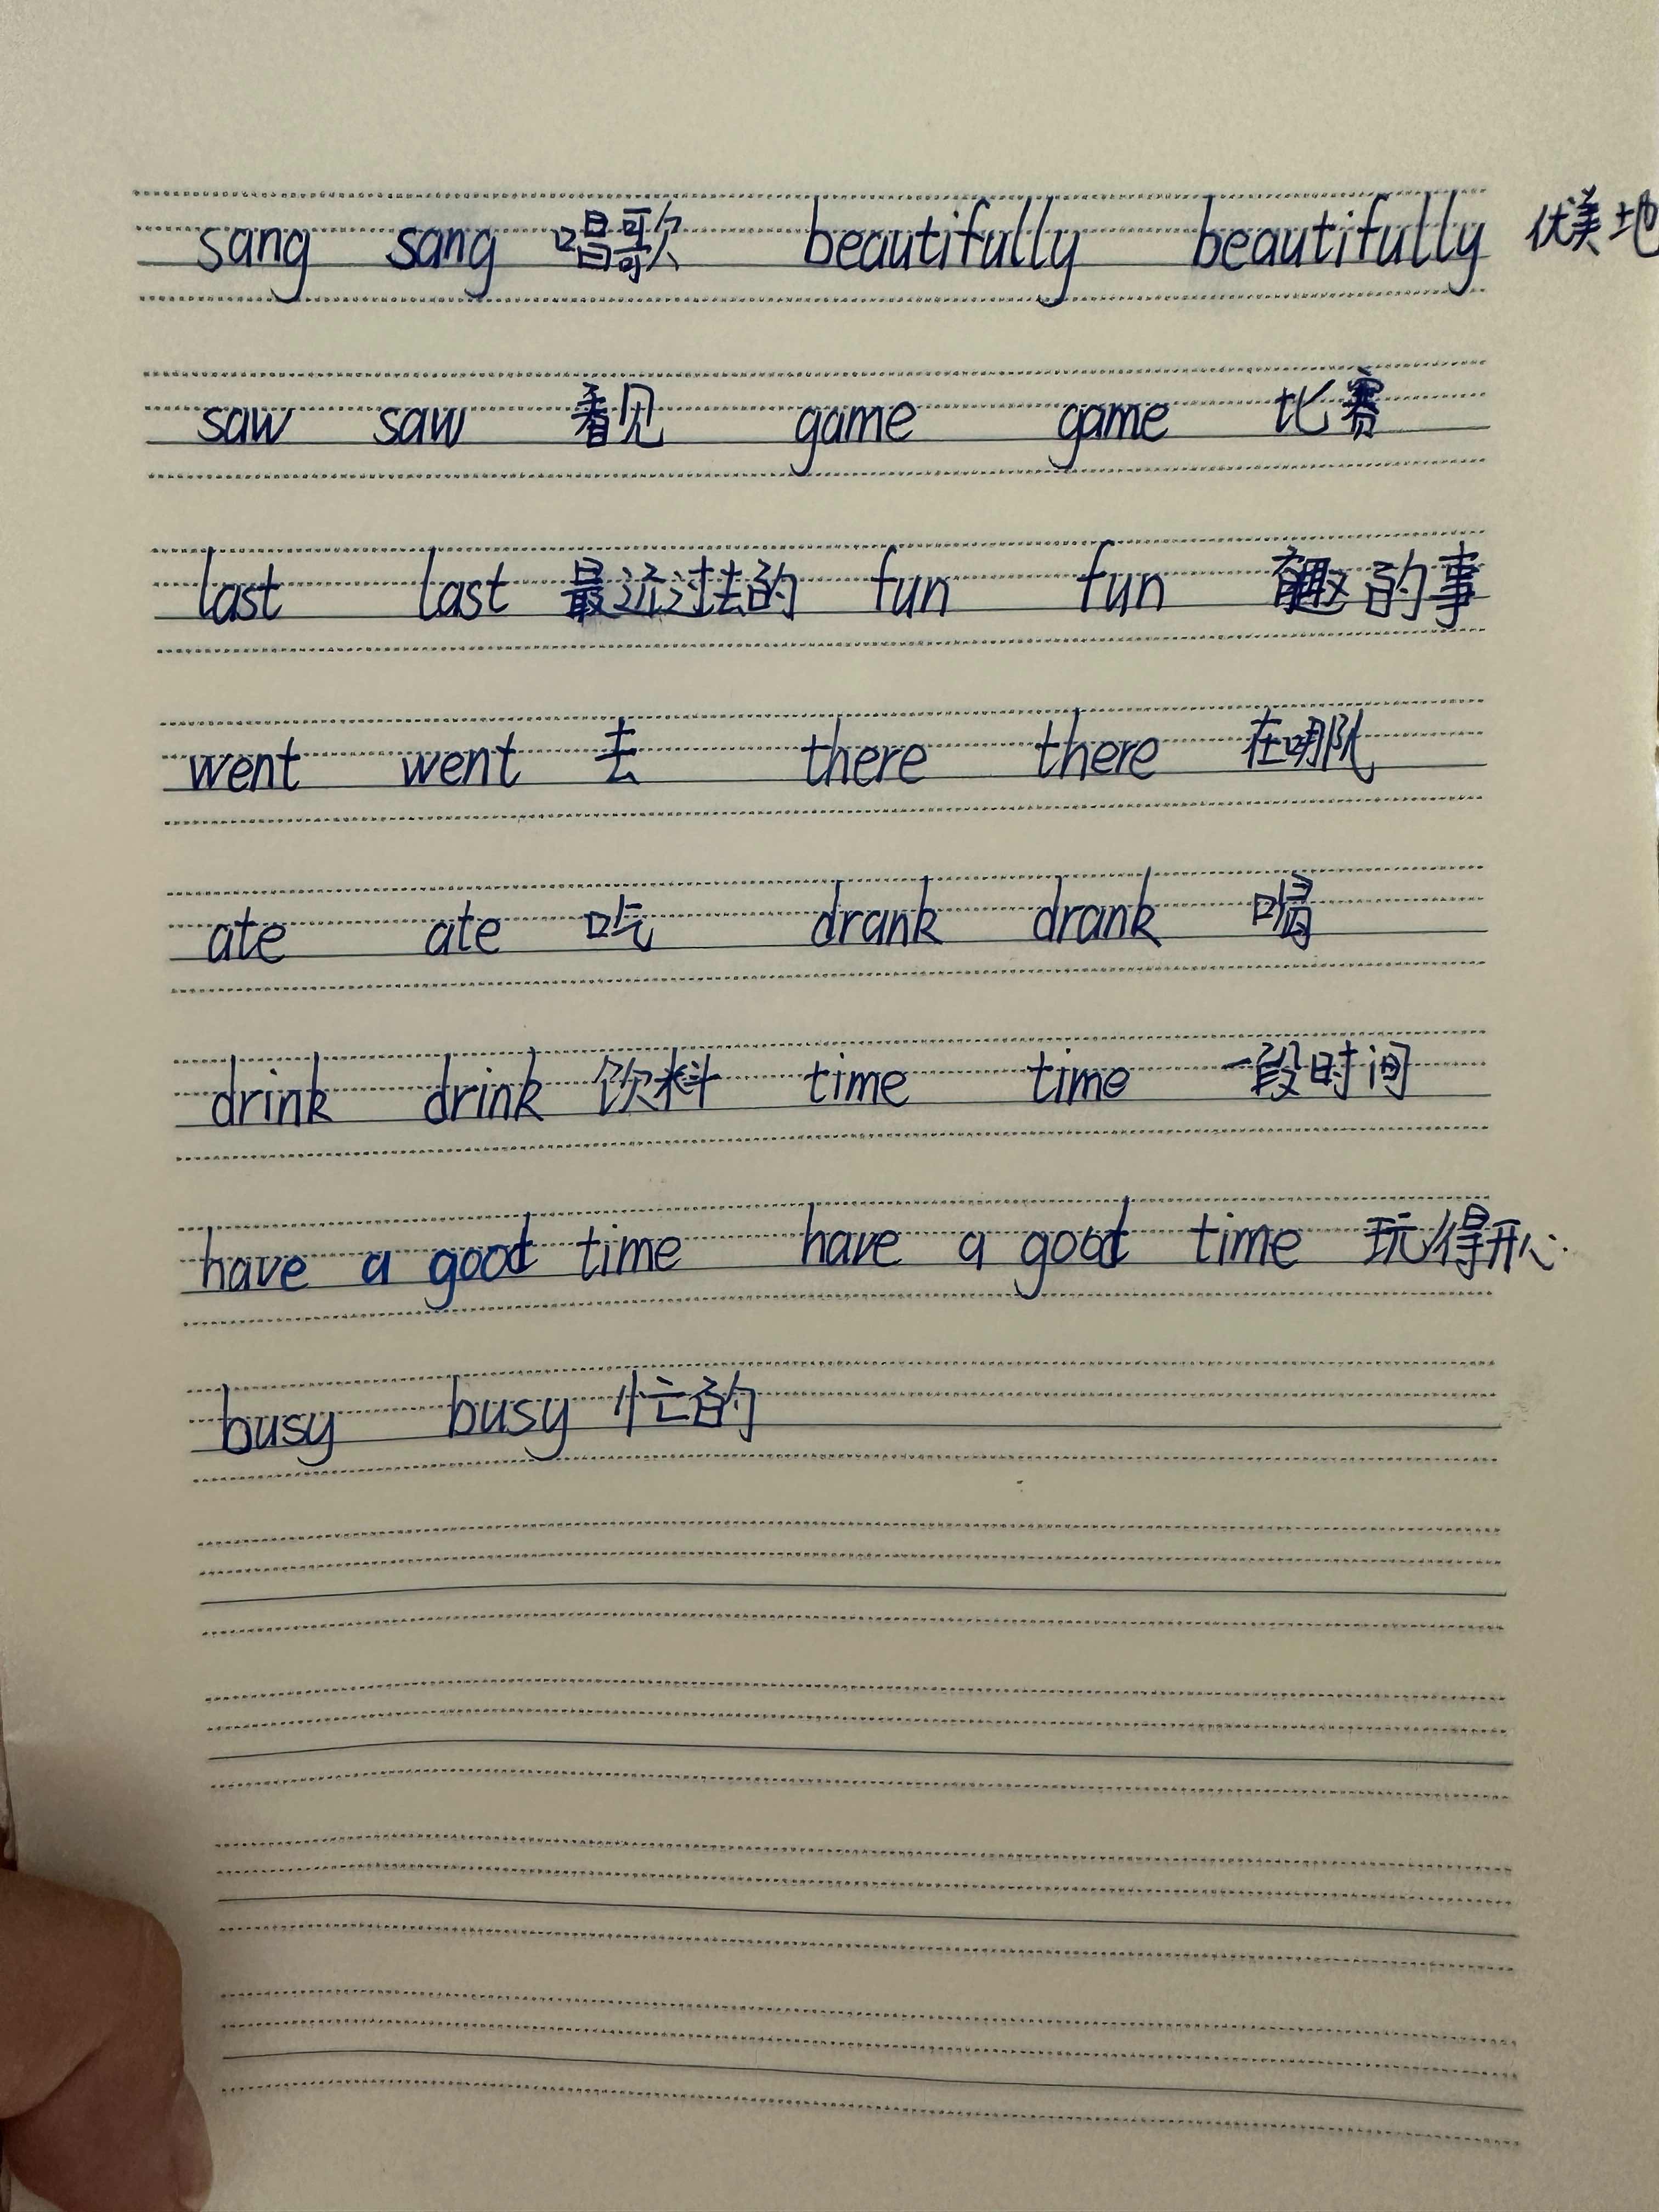 sang sang 唱歌 beautifully beautifully 优美地
saw saw 看见 game game 比赛
last last 最近过去的 fun fun 有趣的事
went went 去 there there 在那
ate ate 吃 drank drank 喝
drink drink 饮料 time time 一段时间
have a good time have a good time 玩得开心
busy busy 忙的